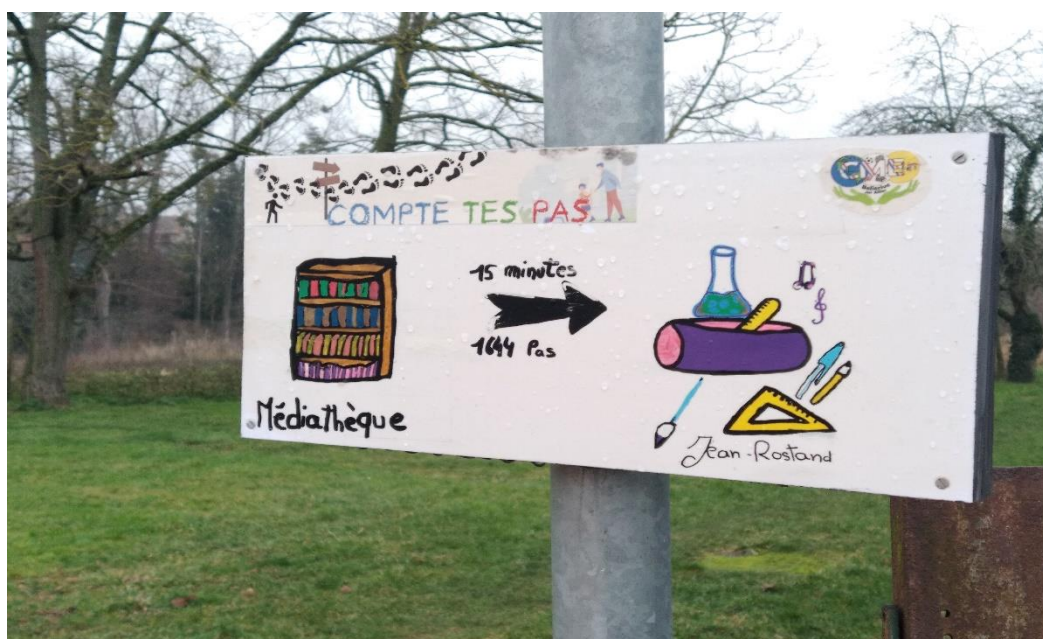 COMPTE TES PAS
15 minutes
1644 Pas
Médiathèque
Jean-Rostand